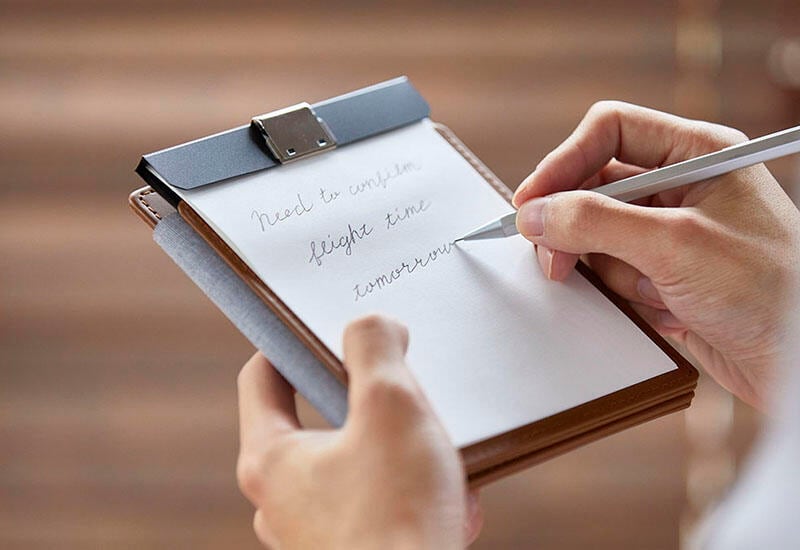 Need to confirm
flight time
tomorrow